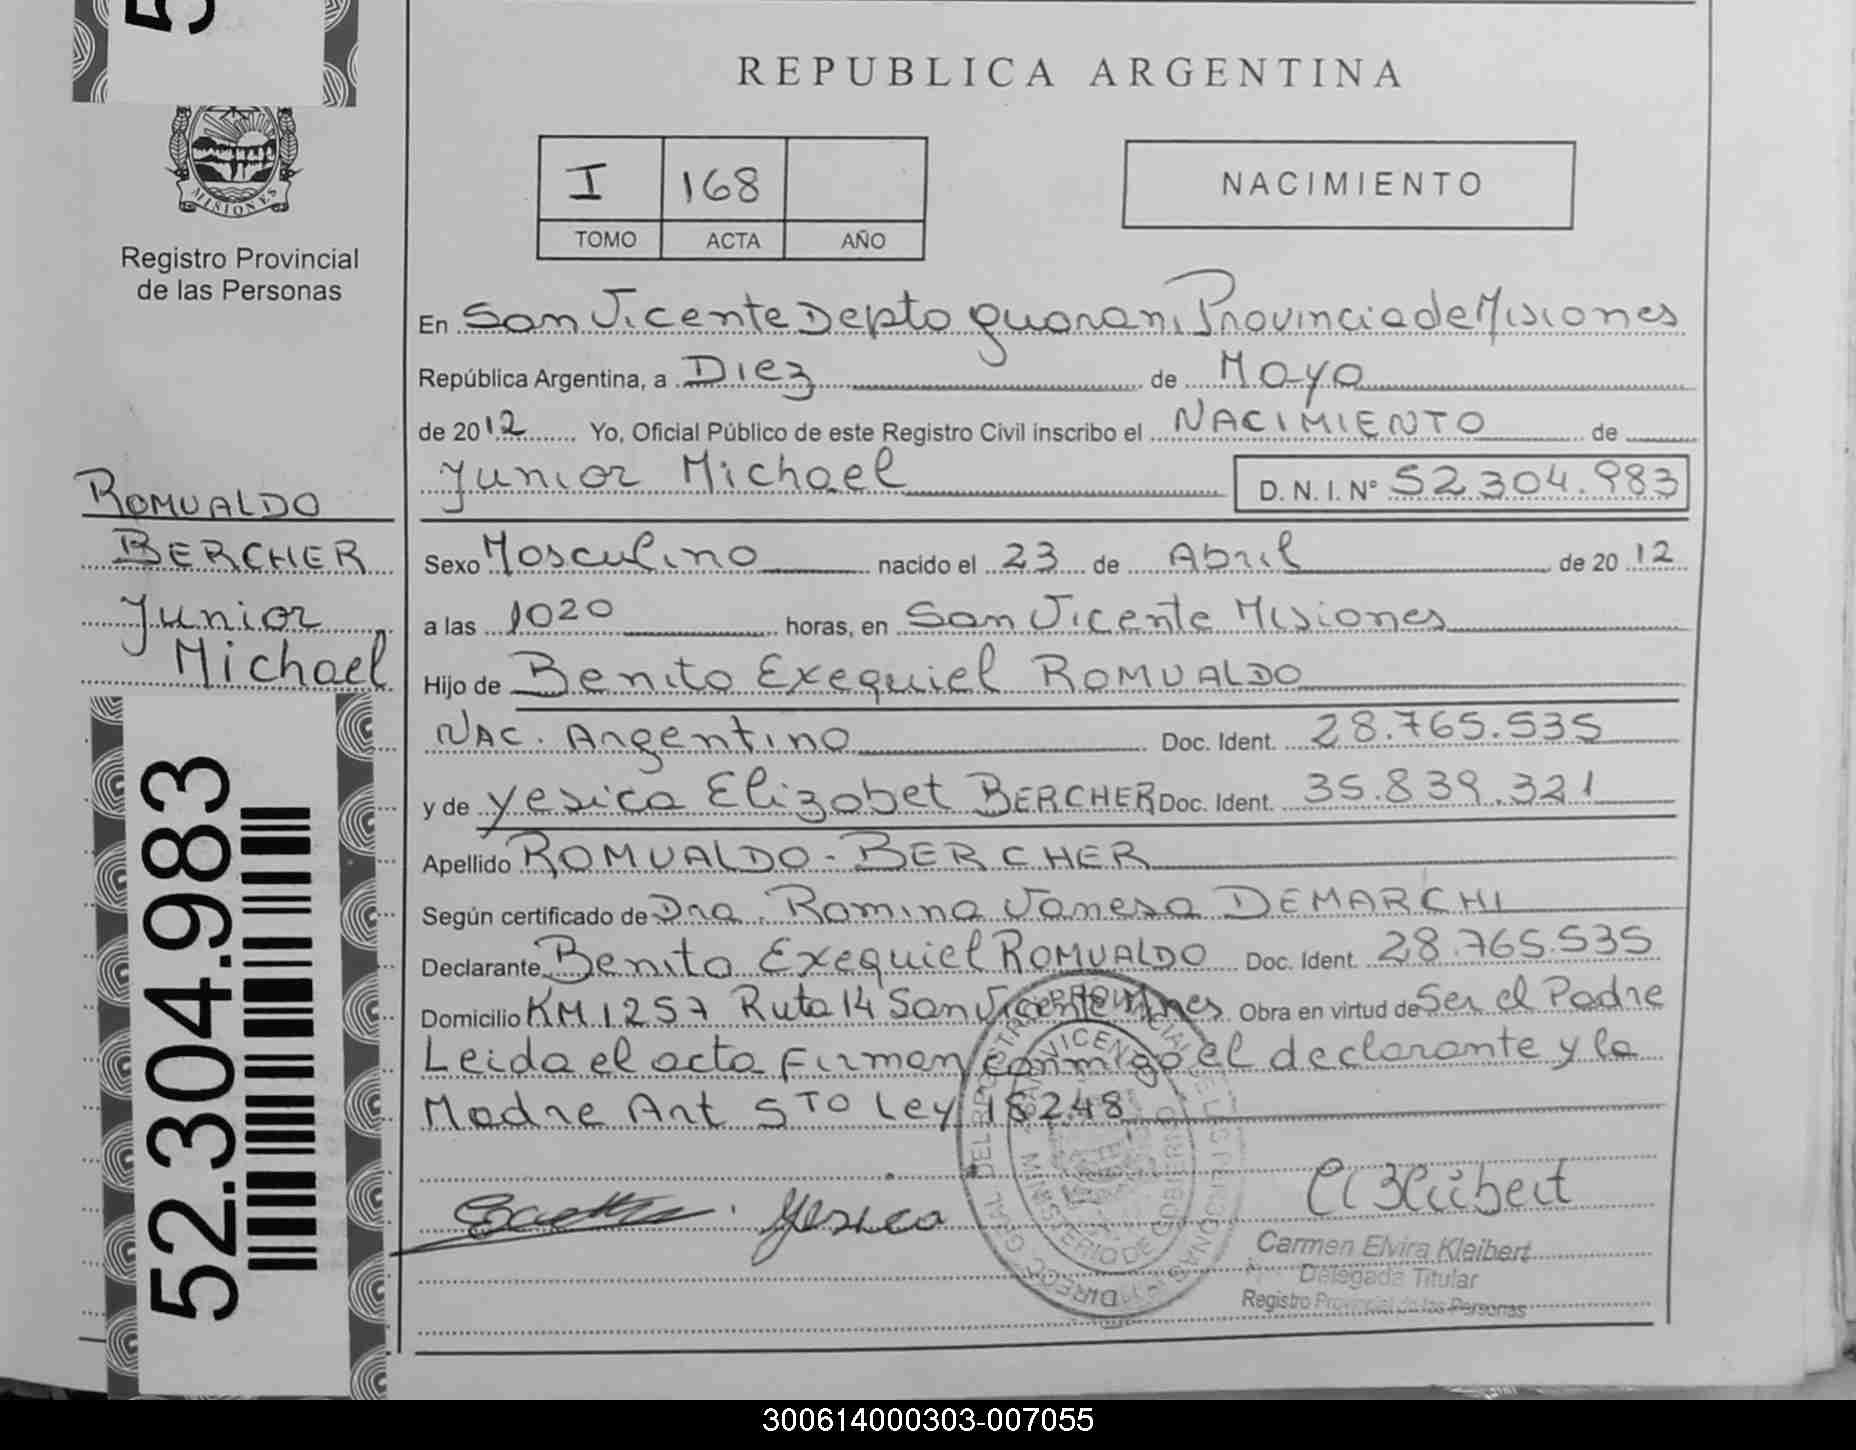 REPUBLICA ARGENTINA
MISIONES
Registro Provincial
de las Personas
I 168
TOMO ACTA AÑO
NACIMIENTO
En San Vicente Depto guarani Provincia de Misiones
República Argentina, a Diez de Mayo
de 2012 Yo, Oficial Público de este Registro Civil inscribo el NACIMIENTO de
Junior Michael D. N. I. Nº 52.304.983
ROMUALDO
BERCHER
Junior
Michael
Sexo Masculino nacido el 23 de Abril de 2012
a las 1020 horas, en San Vicente Misiones
Hijo de Benito Exequiel ROMUALDO
NAC. Argentino Doc. Ident. 28.765.535
y de Yesica Elizabet BERCHER Doc. Ident. 35.839.321
Apellido ROMUALDO - BERCHER
Según certificado de Dra. Romina Vanesa DEMARCHI
Declarante Benito Exequiel ROMUALDO Doc. Ident. 28.765.535
Domicilio KM 1257 Ruta 14 San Vicente Mnes Obra en virtud de Ser el Padre
Leida el acta Firman conmigo el declarante y la
Madre Art 5TO Ley 18248
Yesica
Carmen Elvira Kleibert
Delegada Titular
Registro Provincial de las Personas
52.304.983
300614000303-007055